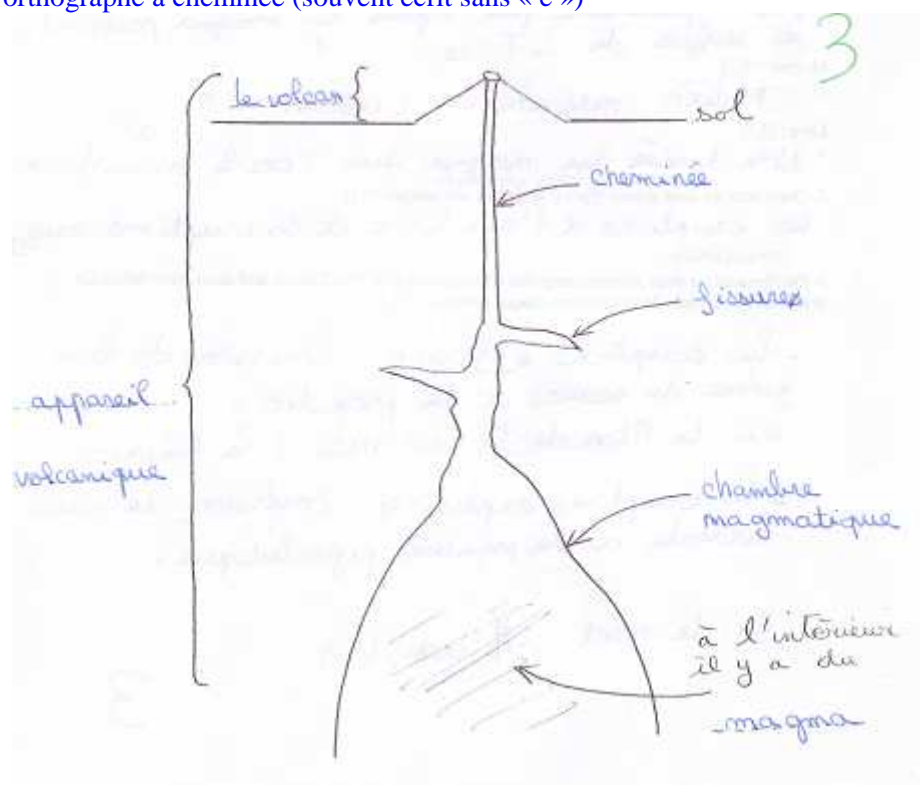 orthographe à cheminée (souvent écrit sans « e »)
3
le volcan
sol
cheminée
fissures
appareil
volcanique
chambre
magmatique
à l'intérieur
il y a du
magma